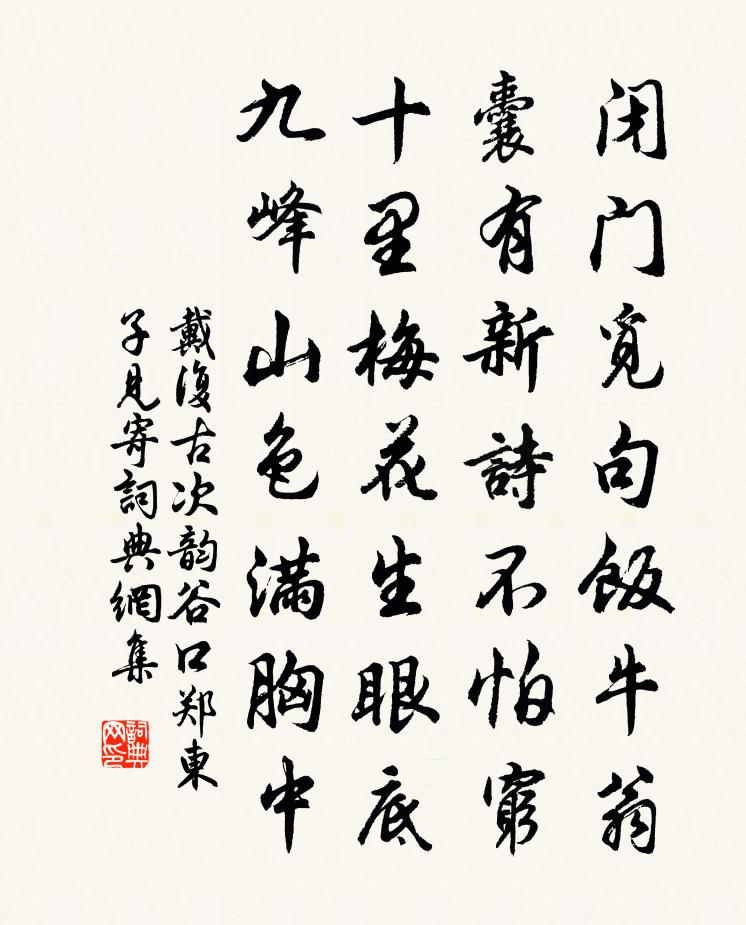 闭门觅句饭牛翁
囊有新詩不怕窮
十里梅花生眼底
九峰山色满胸中
戴復古次韵谷口郑東
子見寄詞典網集
詞典
网印